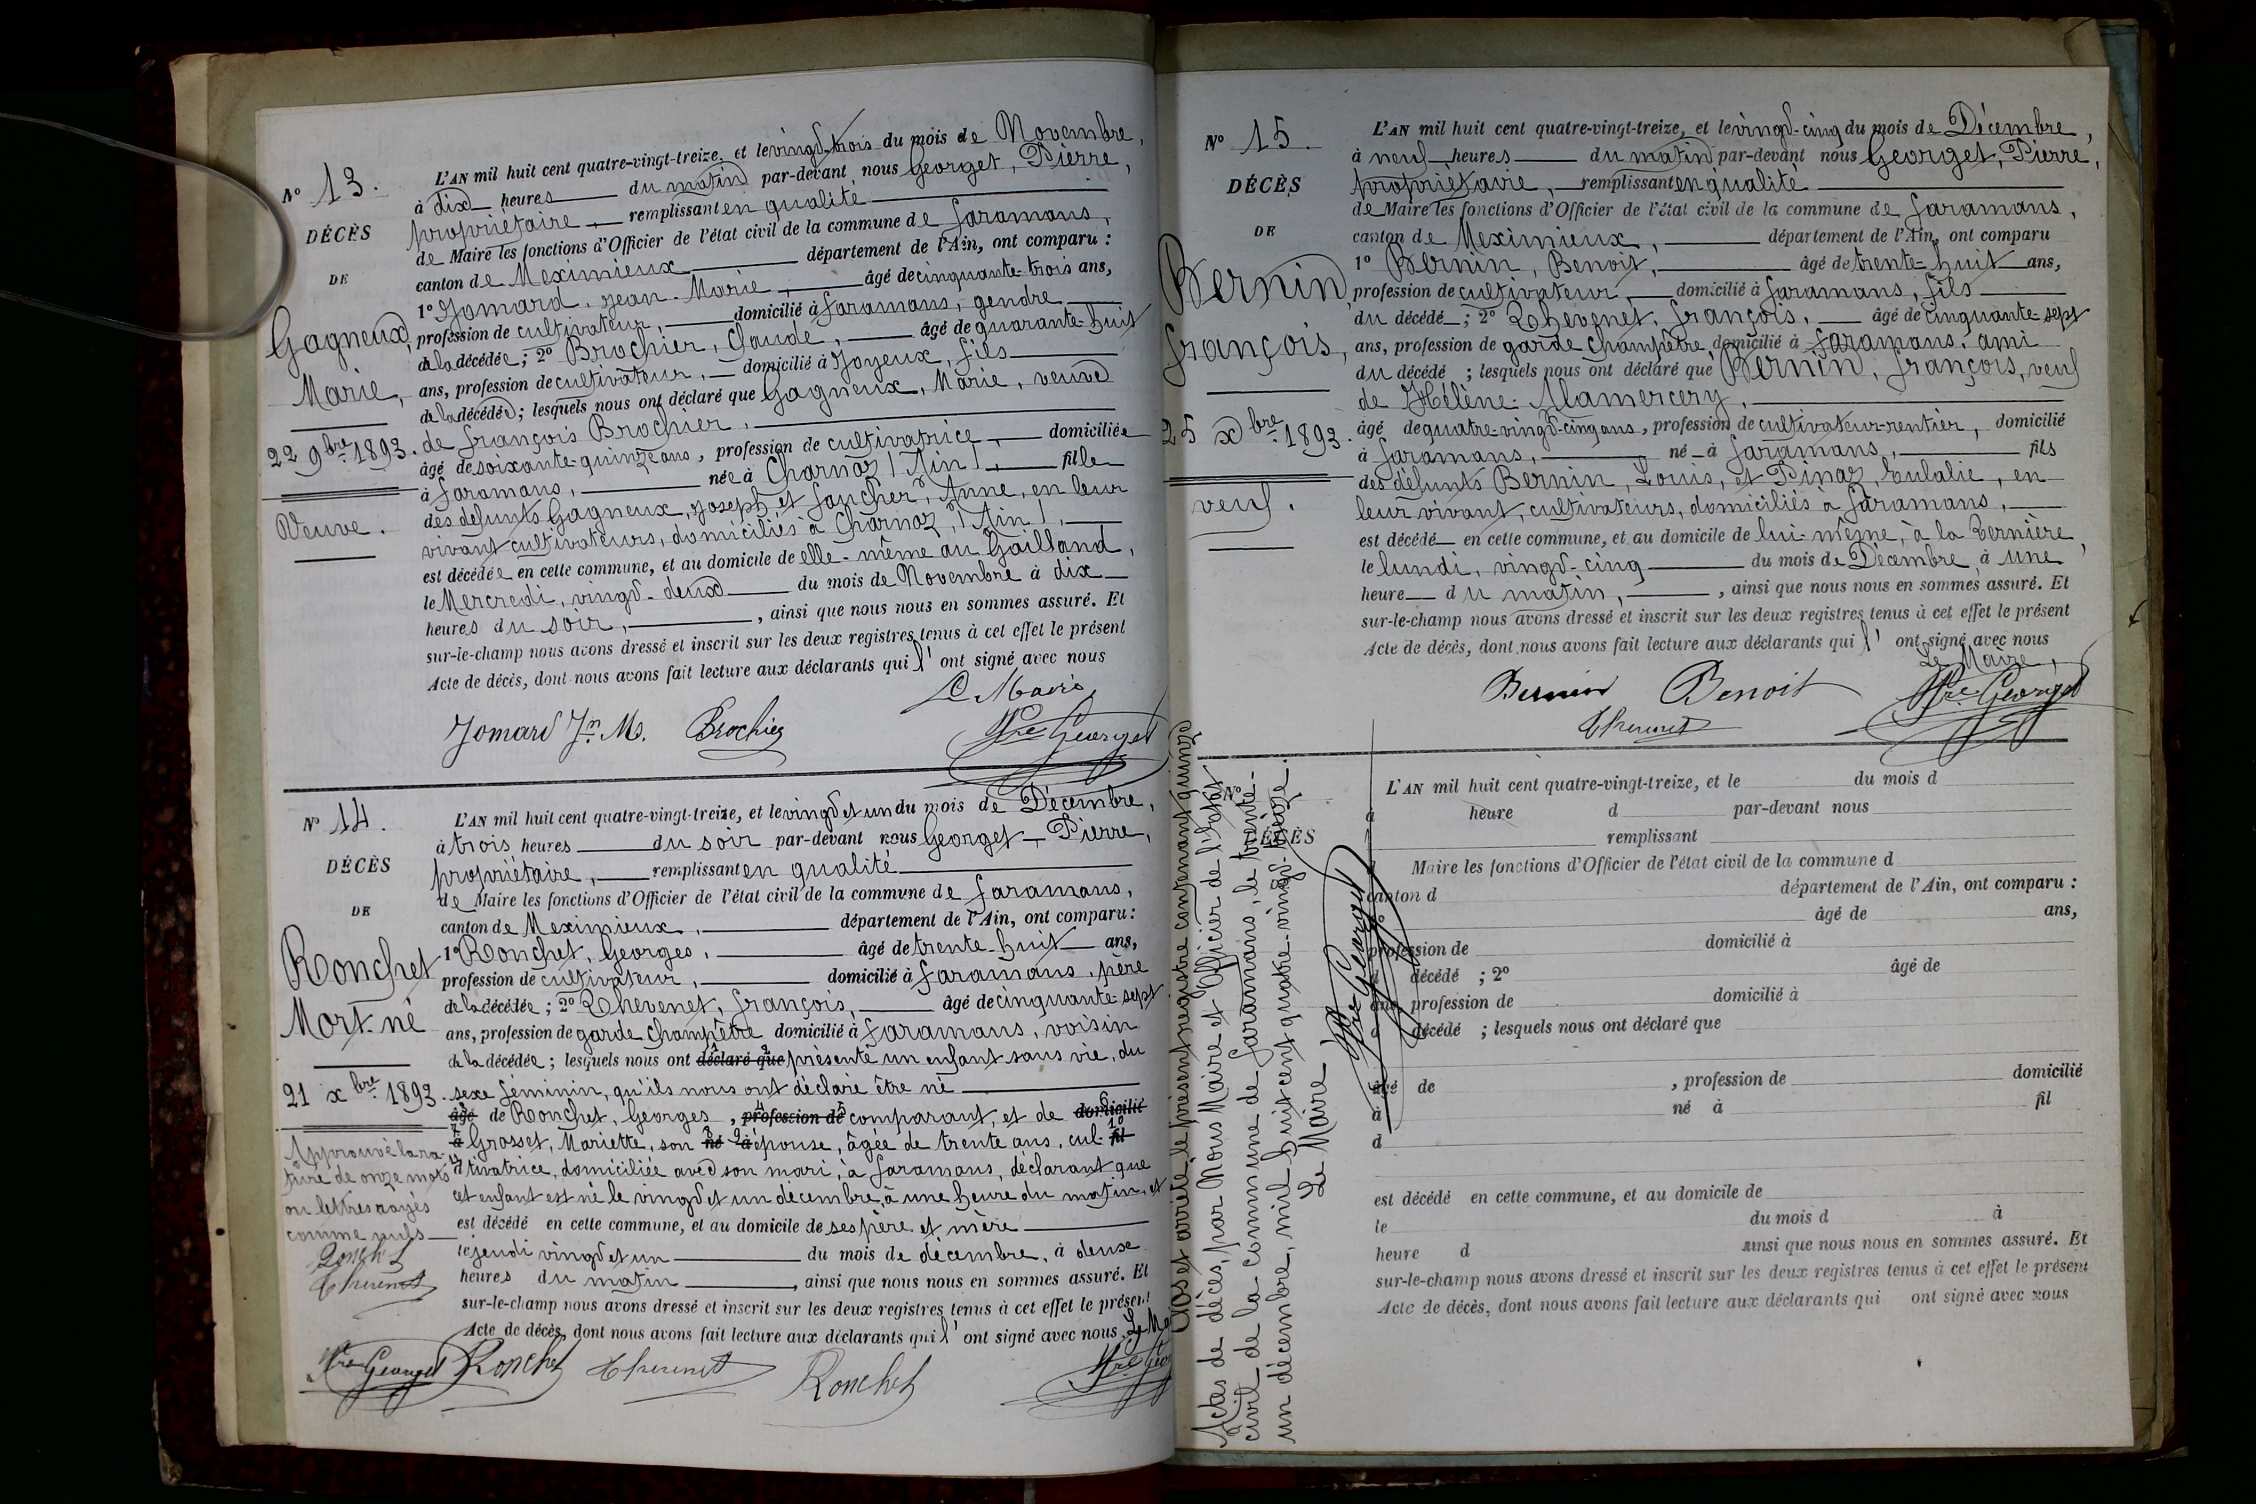 N° 13.
DÉCÈS
DE
Gagneux,
Marie,
22 9bre 1893.
Veuve.
L'AN mil huit cent quatre-vingt-treize, et le vingt-trois du mois de Novembre,
à dix heures du matin par-devant nous Georget, Pierre,
propriétaire, remplissant en qualité
de Maire les fonctions d'Officier de l'état civil de la commune de Faramans,
canton de Meximieux département de l'Ain, ont comparu :
1° Jomard, Jean-Marie, âgé de cinquante-trois ans,
profession de cultivateur, domicilié à Faramans, gendre
de la décédée ; 2° Brochier, Claude, âgé de quarante-huit
ans, profession de cultivateur, domicilié à Joyeux, fils
de la décédée ; lesquels nous ont déclaré que Gagneux, Marie, veuve
de François Brochier,
âgé de soixante-quinze ans, profession de cultivatrice, domiciliée
à Faramans, née à Charnoz (Ain), fille
des défunts Gagneux, Joseph et Faucher, Anne, en leur
vivant cultivateurs, domiciliés à Charnoz, (Ain),
est décédée en cette commune, et au domicile de elle-même au Gailland,
le Mercredi, vingt-deux du mois de Novembre à dix
heures du soir, , ainsi que nous nous en sommes assuré. Et
sur-le-champ nous avons dressé et inscrit sur les deux registres tenus à cet effet le présent
Acte de décès, dont nous avons fait lecture aux déclarants qui l' ont signé avec nous
Le Maire
Jomard Jn. M. Brochier Pre Georget
N° 14.
DÉCÈS
DE
Ronchet
Mort-né
21 xbre 1893.
Approuvé la ra-
ture de onze mots
ou lettres rayés
comme nuls
Ronchet
Thevenet
L'AN mil huit cent quatre-vingt-treize, et le vingt et un du mois de Décembre,
à trois heures du soir par-devant nous Georget, Pierre,
propriétaire, remplissant en qualité
de Maire les fonctions d'Officier de l'état civil de la commune de Faramans,
canton de Meximieux, département de l'Ain, ont comparu :
1° Ronchet, Georges, âgé de trente-huit ans,
profession de cultivateur, domicilié à Faramans, père
de la décédée ; 2° Thevenet, François, âgé de cinquante-sept
ans, profession de garde champêtre domicilié à Faramans, voisin
de la décédée ; lesquels nous ont déclaré que présenté un enfant sans vie, du
sexe féminin, qu'ils nous ont déclaré être né
âgé de Ronchet, Georges, profession de comparant, et de domicilié
à Grosset, Mariette, son né à épouse, âgée de trente ans, cul- fil
d tivatrice, domiciliée avec son mari, à Faramans, déclarant que
cet enfant est né le vingt et un décembre, à une heure du matin, et
est décédé en cette commune, et au domicile de ses père et mère
le jeudi vingt et un du mois de décembre, à deux
heures du matin , ainsi que nous nous en sommes assuré. Et
sur-le-champ nous avons dressé et inscrit sur les deux registres tenus à cet effet le présent
Acte de décès, dont nous avons fait lecture aux déclarants qui l' ont signé avec nous. Le Ma
Pre Georget Ronchet Thevenet Ronchet Pre Geo
N° 15.
DÉCÈS
DE
Bernin
François,
25 xbre 1893.
veuf.
L'AN mil huit cent quatre-vingt-treize, et le vingt-cinq du mois de Décembre,
à neuf heures du matin par-devant nous Georget, Pierre,
propriétaire, remplissant en qualité
de Maire les fonctions d'Officier de l'état civil de la commune de Faramans,
canton de Meximieux, département de l'Ain, ont comparu
1° Bernin, Benoit, âgé de trente-huit ans,
profession de cultivateur, domicilié à Faramans, fils
du décédé ; 2° Thevenet, François, âgé de cinquante-sept
ans, profession de garde champêtre domicilié à Faramans, ami
du décédé ; lesquels nous ont déclaré que Bernin, François, veuf
de Hélène Alamercery,
âgé de quatre-vingt-cinq ans, profession de cultivateur-rentier, domicilié
à Faramans, né à Faramans, fils
des défunts Bernin, Louis, et Pinaz, Eulalie, en
leur vivant, cultivateurs, domiciliés à Faramans,
est décédé en cette commune, et au domicile de lui-même, à la Bernière,
le lundi, vingt-cinq du mois de Décembre à une
heure du matin, , ainsi que nous nous en sommes assuré. Et
sur-le-champ nous avons dressé et inscrit sur les deux registres tenus à cet effet le présent
Acte de décès, dont nous avons fait lecture aux déclarants qui l' ont signé avec nous
Le Maire,
Bernin Benoit Pre Georget
Thevenet
Clos et arrêté le présent registre contenant quinze
Actes de décès, par Nous Maire et Officier de l'état
civil de la commune de Faramans, le trente-
un décembre, mil huit cent quatre-vingt-treize.
Le Maire
Pre Georget
N°
DÉCÈS
L'AN mil huit cent quatre-vingt-treize, et le du mois d
à heure d par-devant nous
remplissant
d Maire les fonctions d'Officier de l'état civil de la commune d
canton d département de l'Ain, ont comparu :
1° âgé de ans,
profession de domicilié à
d décédé ; 2° âgé de
ans, profession de domicilié à
d décédé ; lesquels nous ont déclaré que
âgé de , profession de domicilié
à né à fil
d
est décédé en cette commune, et au domicile de
le du mois d à
heure d ainsi que nous nous en sommes assuré. Et
sur-le-champ nous avons dressé et inscrit sur les deux registres tenus à cet effet le présent
Acte de décès, dont nous avons fait lecture aux déclarants qui ont signé avec nous